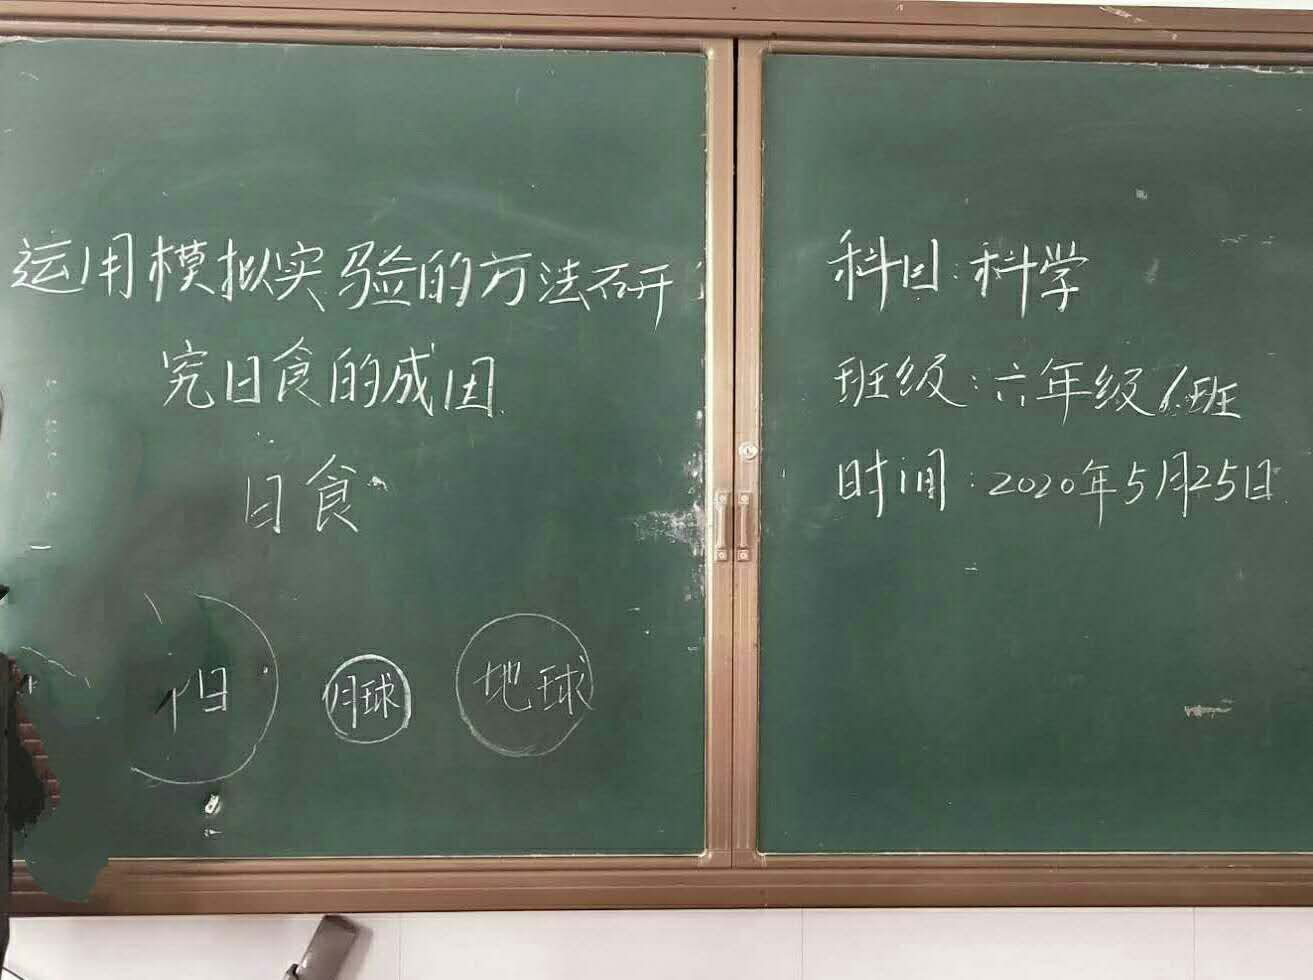 运用模拟实验的方法研
究日食的成因
日食
阳
月球
地球
科目:科学
班级:六年级6班
时间:2020年5月25日